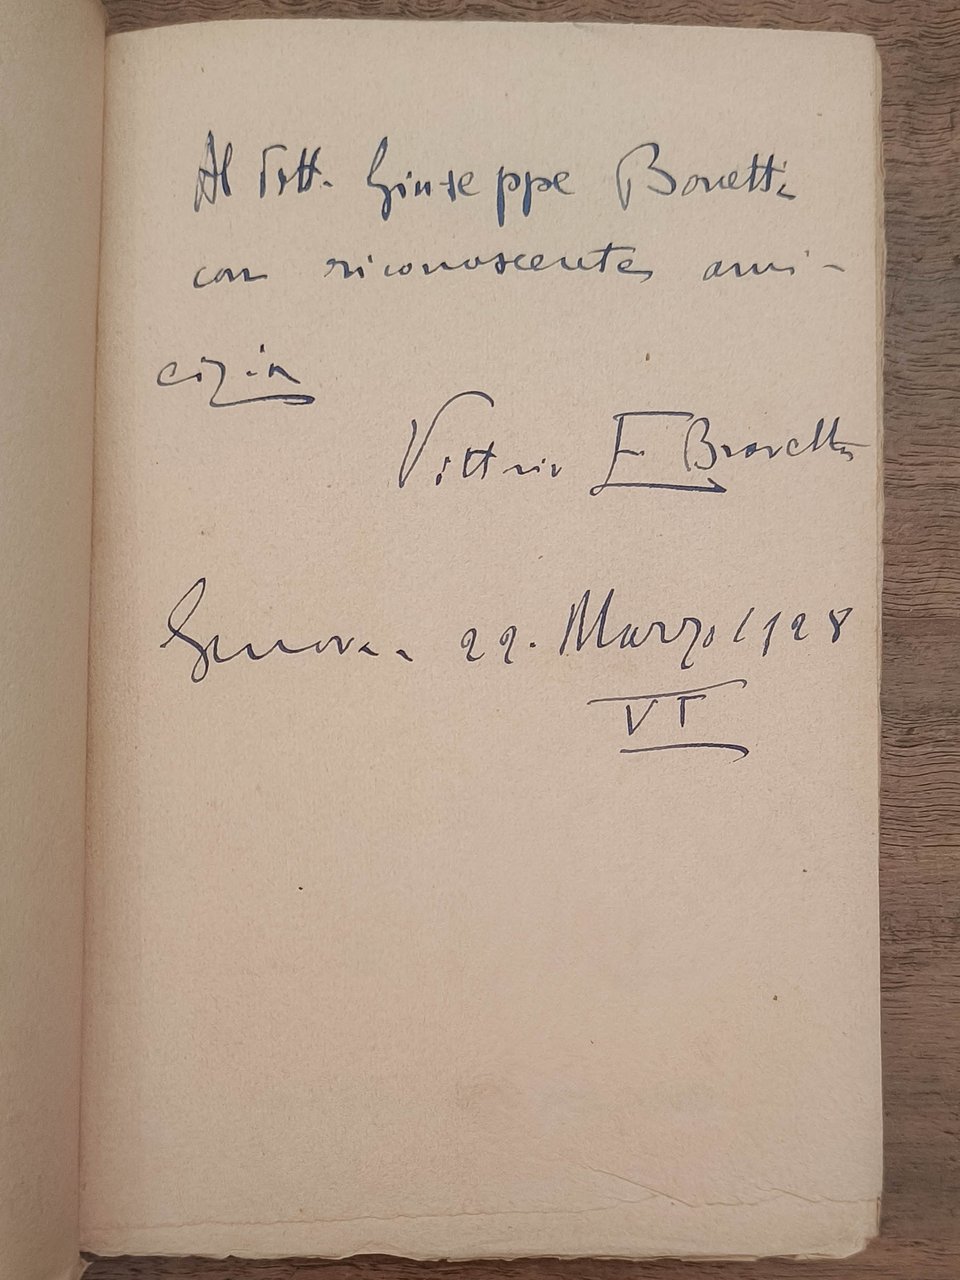 Al Dott. Giuseppe Bonetti
con riconoscente ami-
cizia
Vittorio E Bravetta
Genova. 22. Marzo 1928
VI